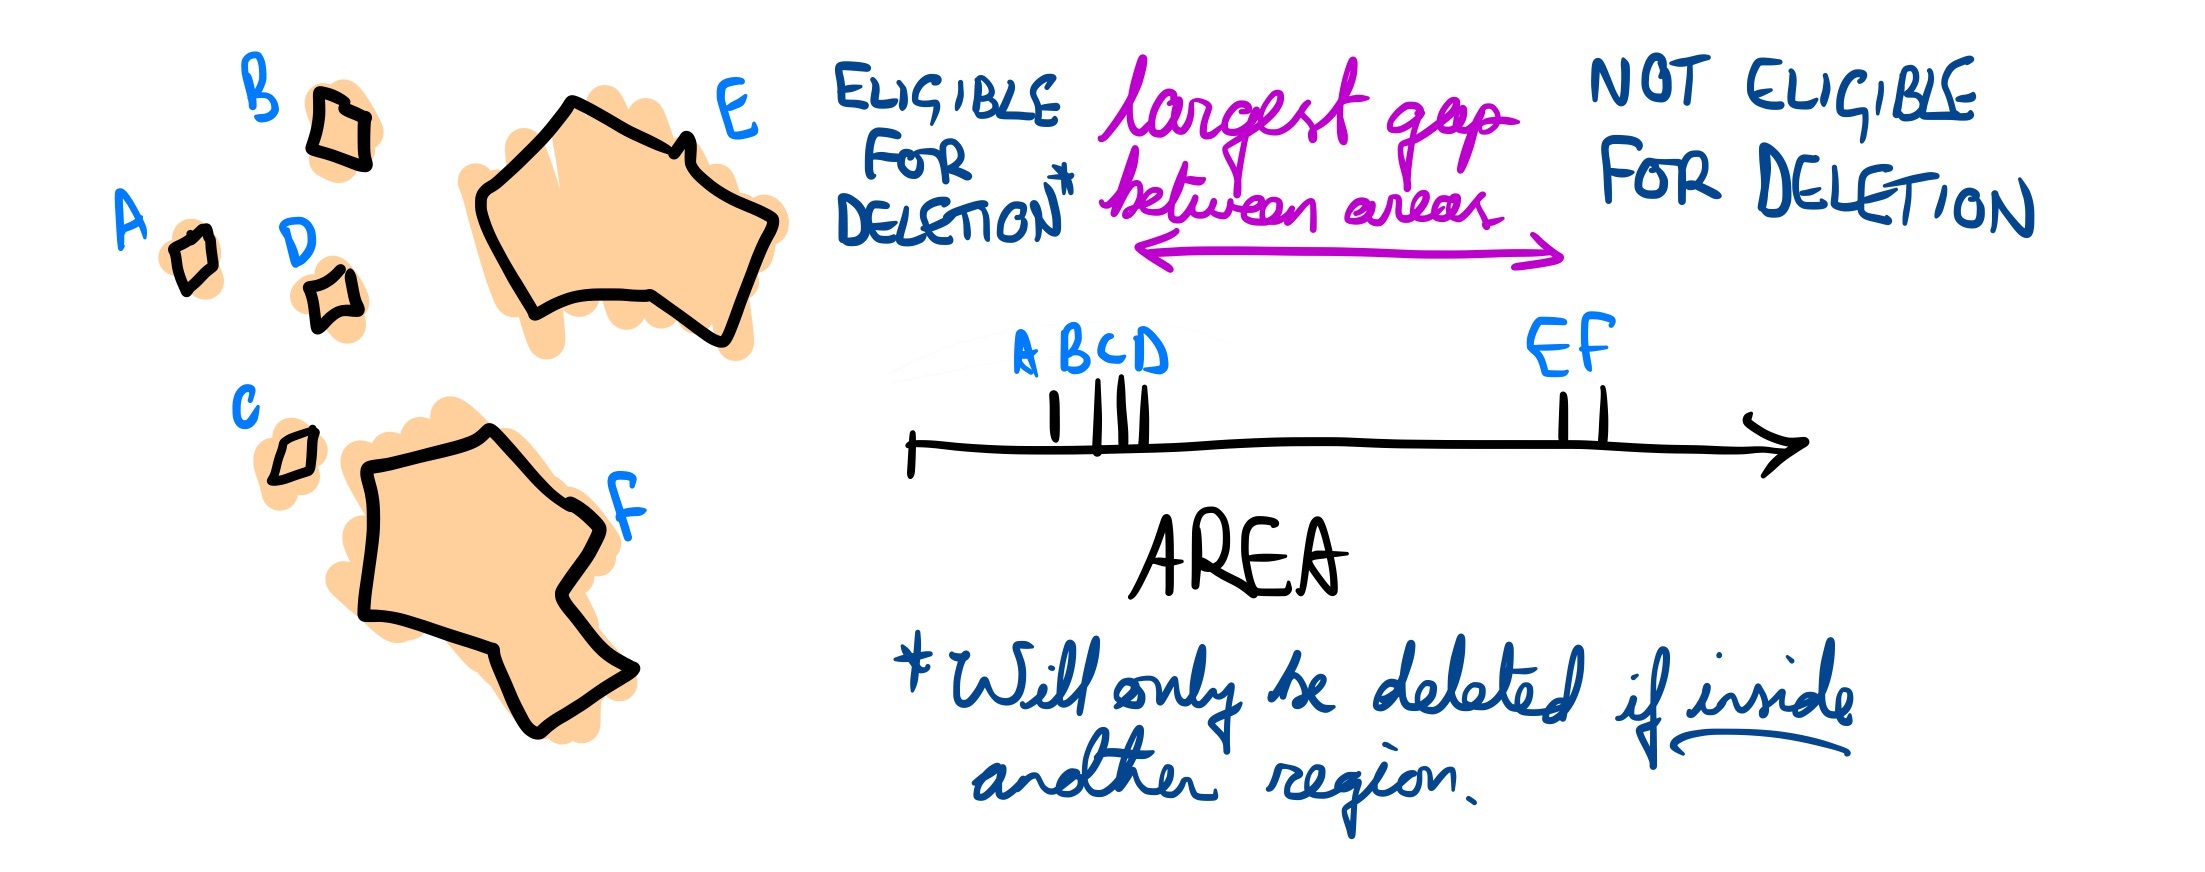 B
E
A
D
C
F
ELIGIBLE
FOR
DELETION*
largest gap
between areas
NOT ELIGIBLE
FOR DELETION
A B C D
E F
AREA
* Will only be deleted if inside
another region.